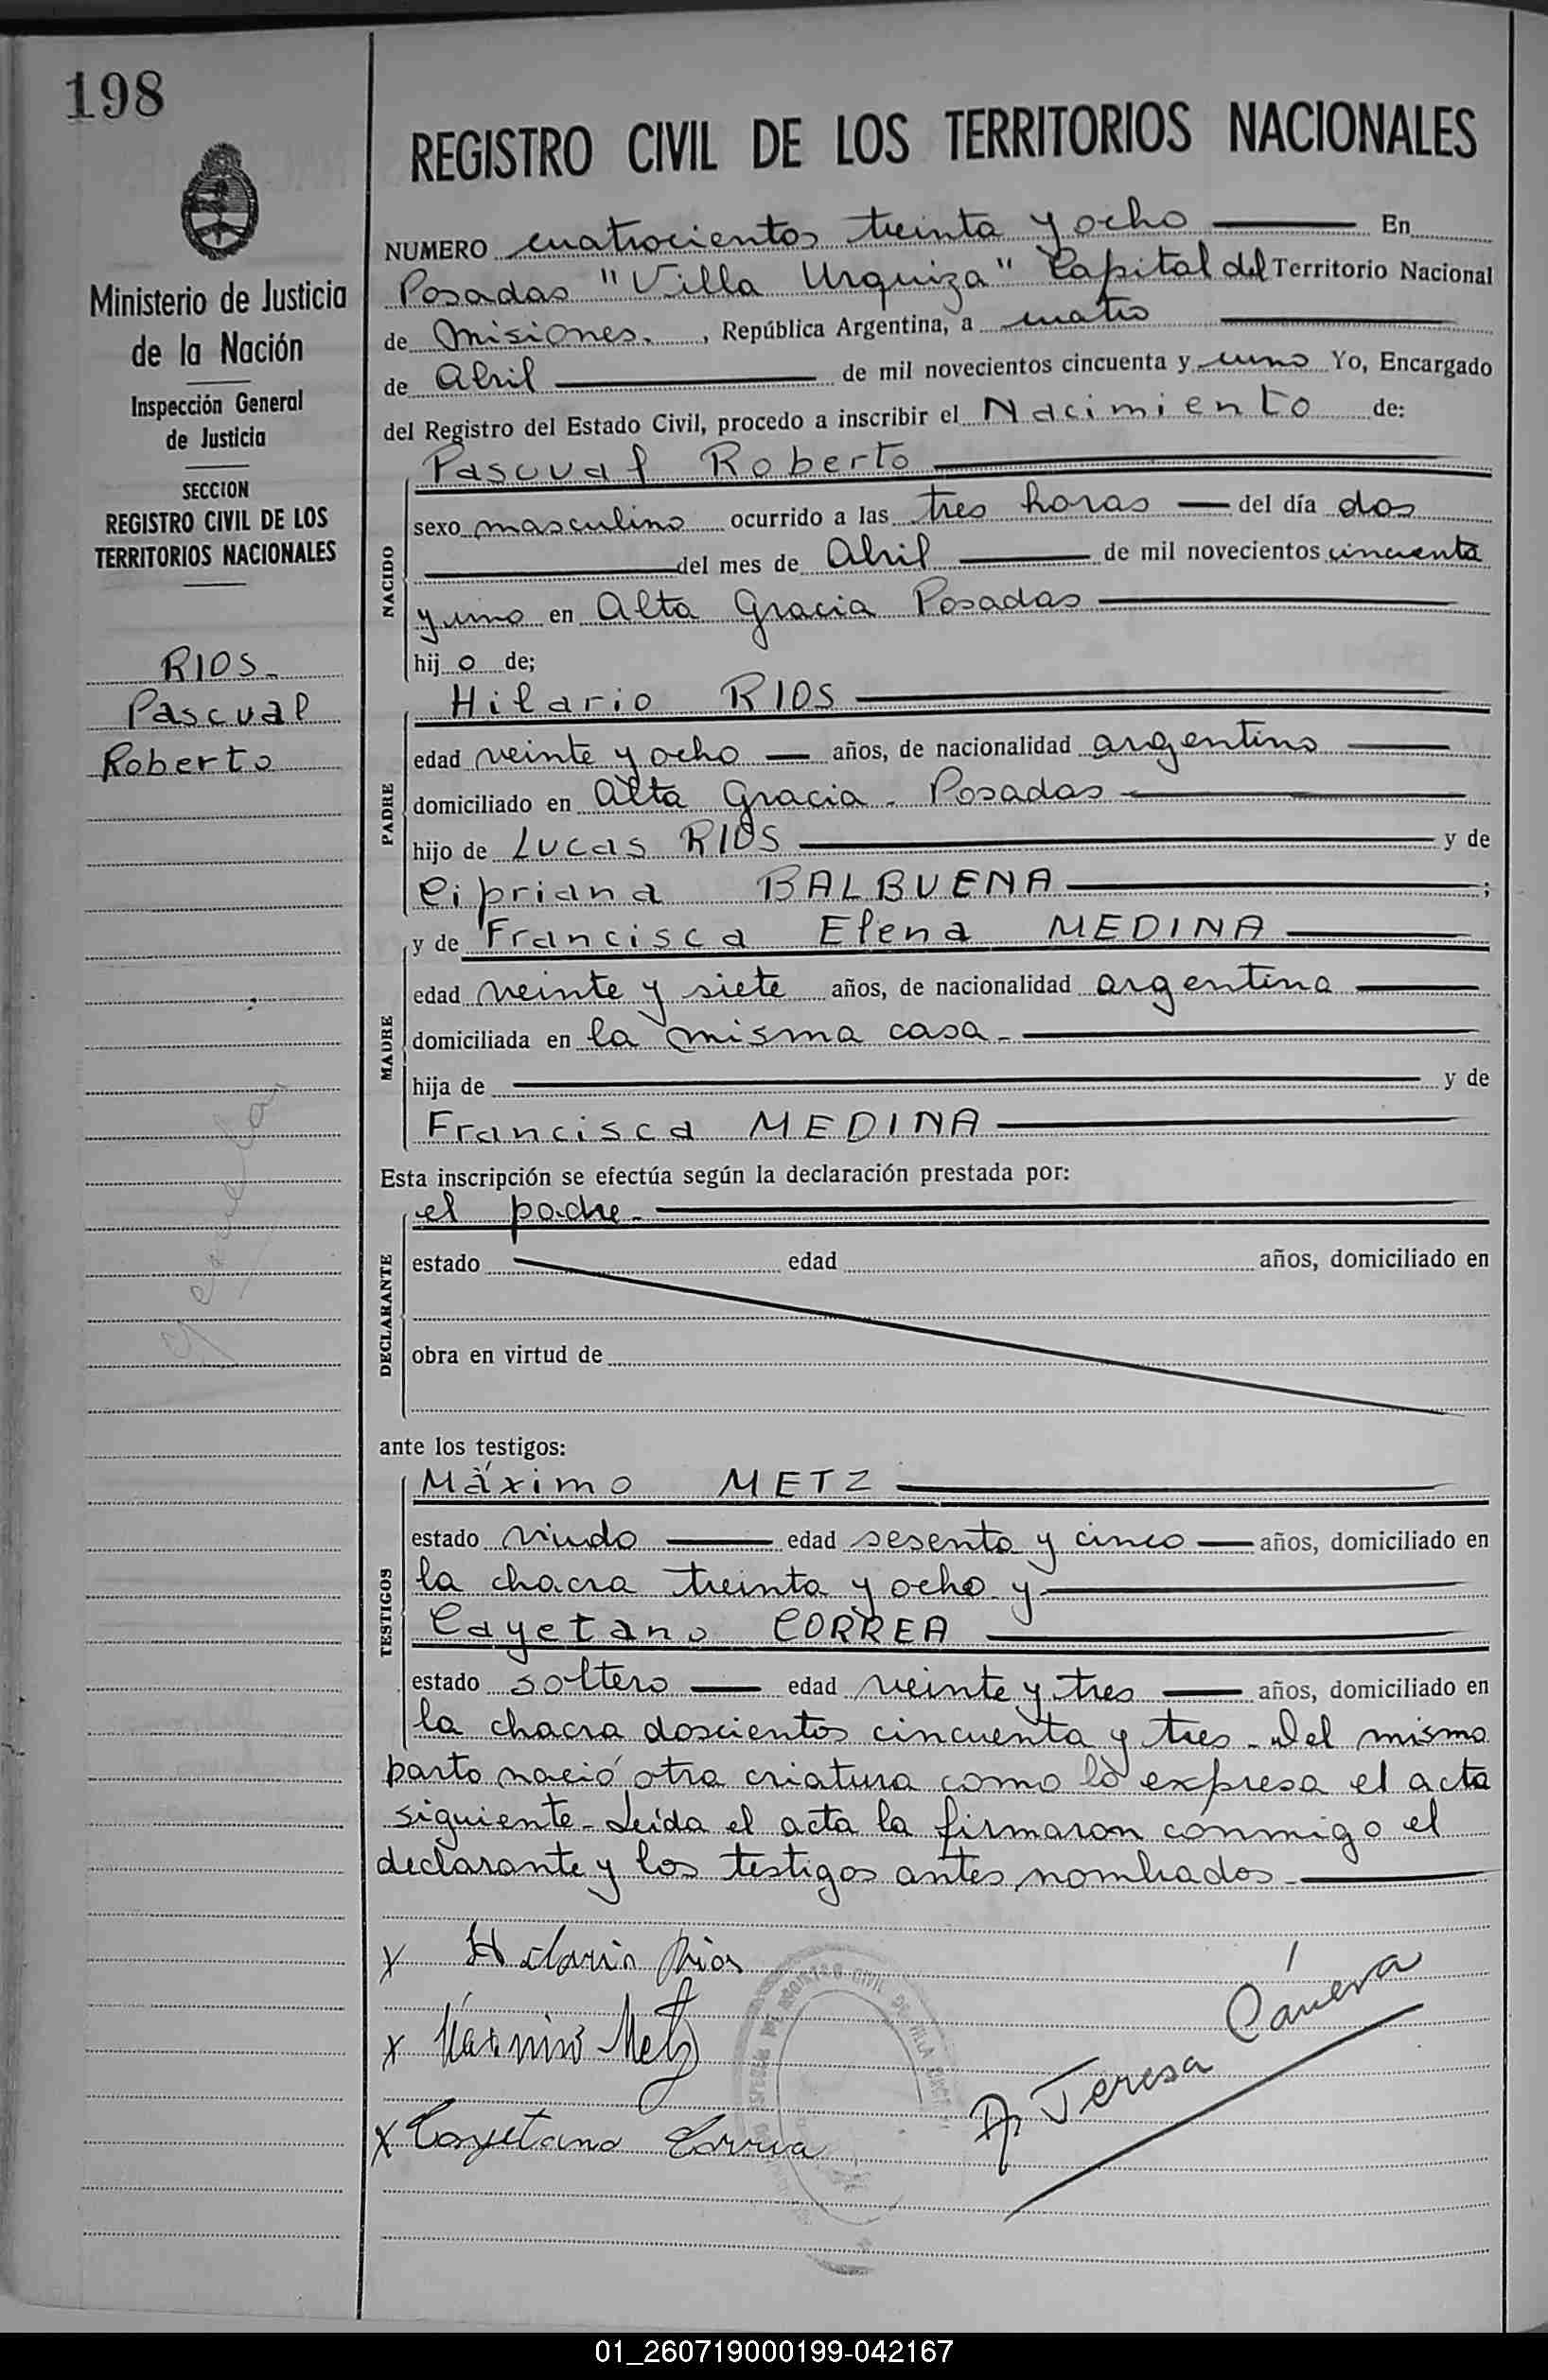 198
REGISTRO CIVIL DE LOS TERRITORIOS NACIONALES
Ministerio de Justicia
de la Nación
Inspección General
de Justicia
SECCION
REGISTRO CIVIL DE LOS
TERRITORIOS NACIONALES
RIOS.
Pascual
Roberto
NUMERO cuatrocientos treinta y ocho En
Posadas "Villa Urquiza" Capital del Territorio Nacional
de Misiones. , República Argentina, a cuatro
de Abril de mil novecientos cincuenta y uno Yo, Encargado
del Registro del Estado Civil, procedo a inscribir el Nacimiento de:
NACIDO
Pascual Roberto
sexo masculino ocurrido a las tres horas del día dos
del mes de Abril de mil novecientos cincuenta
y uno en Alta Gracia Posadas
hijo de;
PADRE
Hilario RIOS
edad veinte y ocho años, de nacionalidad argentino
domiciliado en Alta Gracia - Posadas
hijo de Lucas RIOS y de
Cipriana BALBUENA ;
MADRE
y de Francisca Elena MEDINA
edad veinte y siete años, de nacionalidad argentina
domiciliada en la misma casa -
hija de y de
Francisca MEDINA
Esta inscripción se efectúa según la declaración prestada por:
DECLARANTE
el padre -
estado edad años, domiciliado en
obra en virtud de
ante los testigos:
TESTIGOS
Máximo METZ
estado viudo edad sesenta y cinco años, domiciliado en
la chacra treinta y ocho y
Cayetano CORREA
estado soltero edad veinte y tres años, domiciliado en
la chacra doscientos cincuenta y tres - Del mismo
parto nació otra criatura como lo expresa el acta
siguiente - Leída el acta la firmaron conmigo el
declarante y los testigos antes nombrados -
x Hilario Rios
x Máximo Metz
x Cayetano Correa
Teresa Cánera
01_260719000199-042167